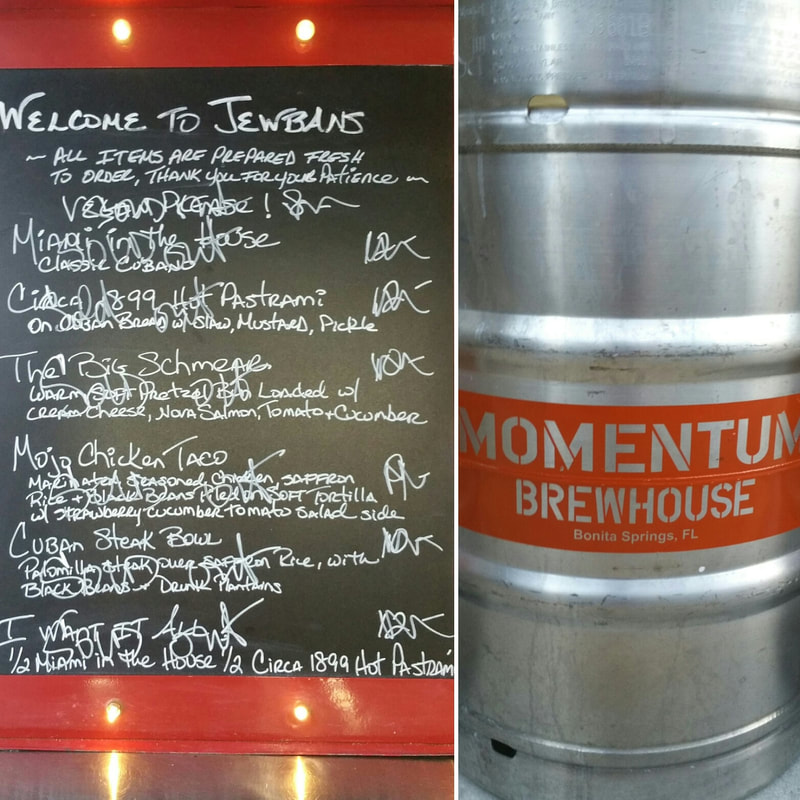 WELCOME TO JEWBANS
~ ALL ITEMS ARE PREPARED FRESH
TO ORDER, THANK YOU FOR YOUR Patience ~
Miami in the House
CLASSIC CUBANO
Circa 1899 Hot Pastrami
on Cuban Bread w/ Slaw, Mustard, Pickle
The Big Schmear
WARM SOFT Pretzel Bun Loaded w/
cream Cheese, Nova Salmon, Tomato + Cucumber
Mojo Chicken Taco
Marinated Seasoned Chicken, saffron
Rice + Black Beans SOFT Tortilla
w/ STRAWBERRY CUCUMBER TOMATO SALAD side
Cuban Steak Bowl
Palomilla Steak over Saffron Rice, with
Black Beans + Drunk Plantains
I WANT IT ALL
1/2 Miami in the House 1/2 Circa 1899 Hot Pastrami
MOMENTUM
BREWHOUSE
Bonita Springs, FL